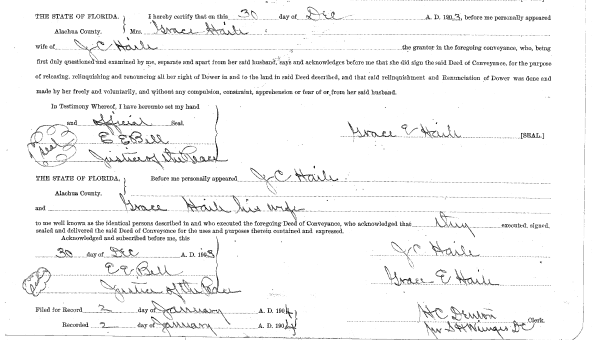 THE STATE OF FLORIDA. } I hereby certify that on this 30 day of Dec A. D. 1903, before me personally appeared
Alachua County. } Mrs. Grace Haile
wife of J C Haile the grantor in the foregoing conveyance, who, being
first duly questioned and examined by me, separate and apart from her said husband, says and acknowledges before me that she did sign the said Deed of Conveyance, for the purpose
of releasing, relinquishing and renouncing all her right of Dower in and to the land in said Deed described, and that said relinquishment and Renunciation of Dower was done
made by her freely and voluntarily, and without any compulsion, constraint, apprehension or fear of or from her said husband.
In Testimony Whereof, I have hereunto set my hand
and official Seal.
Seal E E Bell Grace E Haile [SEAL.]
Justice of the Peace
THE STATE OF FLORIDA, } Before me personally appeared J C Haile
Alachua County. }
and Grace Haile his wife
to me well known as the identical persons described in and who executed the foregoing Deed of Conveyance, who acknowledged that they executed, signed,
sealed and delivered the said Deed of Conveyance for the uses and purposes therein contained and expressed.
Acknowledged and subscribed before me, this
30 day of Dec A. D. 1903 J C Haile
Seal E E Bell Grace E Haile
Justice of the Peace
Filed for Record 2 day of January A. D. 1904 H C Denton Clerk.
Recorded 2 day of January A. D. 1904